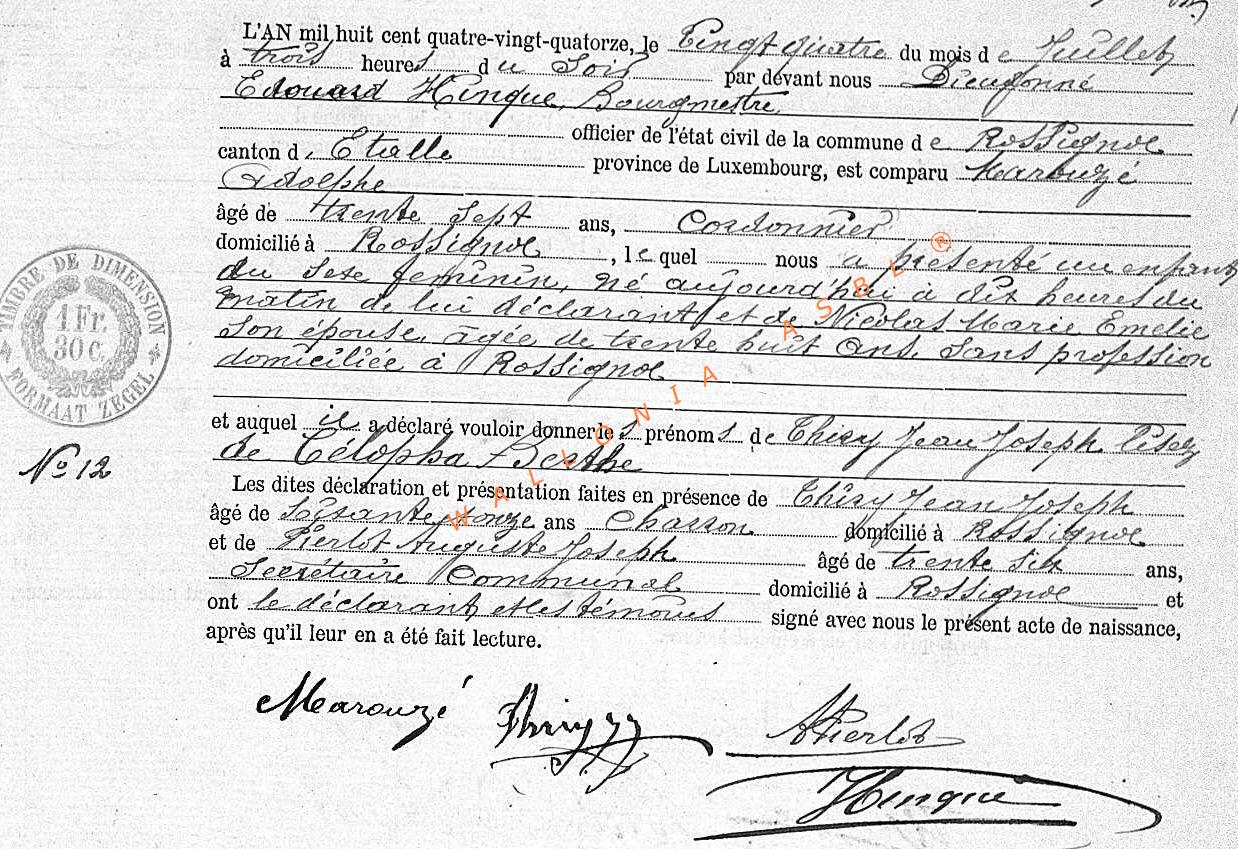 L'AN mil huit cent quatre-vingt-quatorze, le Vingt quatre du mois de Juillet
à trois heures du Soir par devant nous Dieudonné
Edouard Hinque, Bourgmestre
officier de l'état civil de la commune de Rossignol
canton d'Etalle province de Luxembourg, est comparu Marouzé
Adolphe
âgé de trente Sept ans, Cordonnier
domicilié à Rossignol, lequel nous a présenté un enfant
du Sexe féminin, né aujourd'hui à dix heures du
matin de lui déclarant et de Nicolas Marie Emelie
Son épouse, agée de trente huit ans, Sans profession
domiciliée à Rossignol
et auquel il a déclaré vouloir donner les prénoms de Thiry Jean Joseph
de Célopha Berthe
Les dites déclaration et présentation faites en présence de Thiry Jean Joseph
âgé de ans Charron domicilié à Rossignol
et de Pierlot Auguste Joseph âgé de trente Six ans,
Secrétaire Communal domicilié à Rossignol et
ont le déclarant et les témoins signé avec nous le présent acte de naissance,
après qu'il leur en a été fait lecture.
TIMBRE DE DIMENSION
1 Fr.
30 C.
FORMAAT ZEGEL
No 12
WALLONIA ASBL ®
Marouzé Thiry APierlot
Hinque